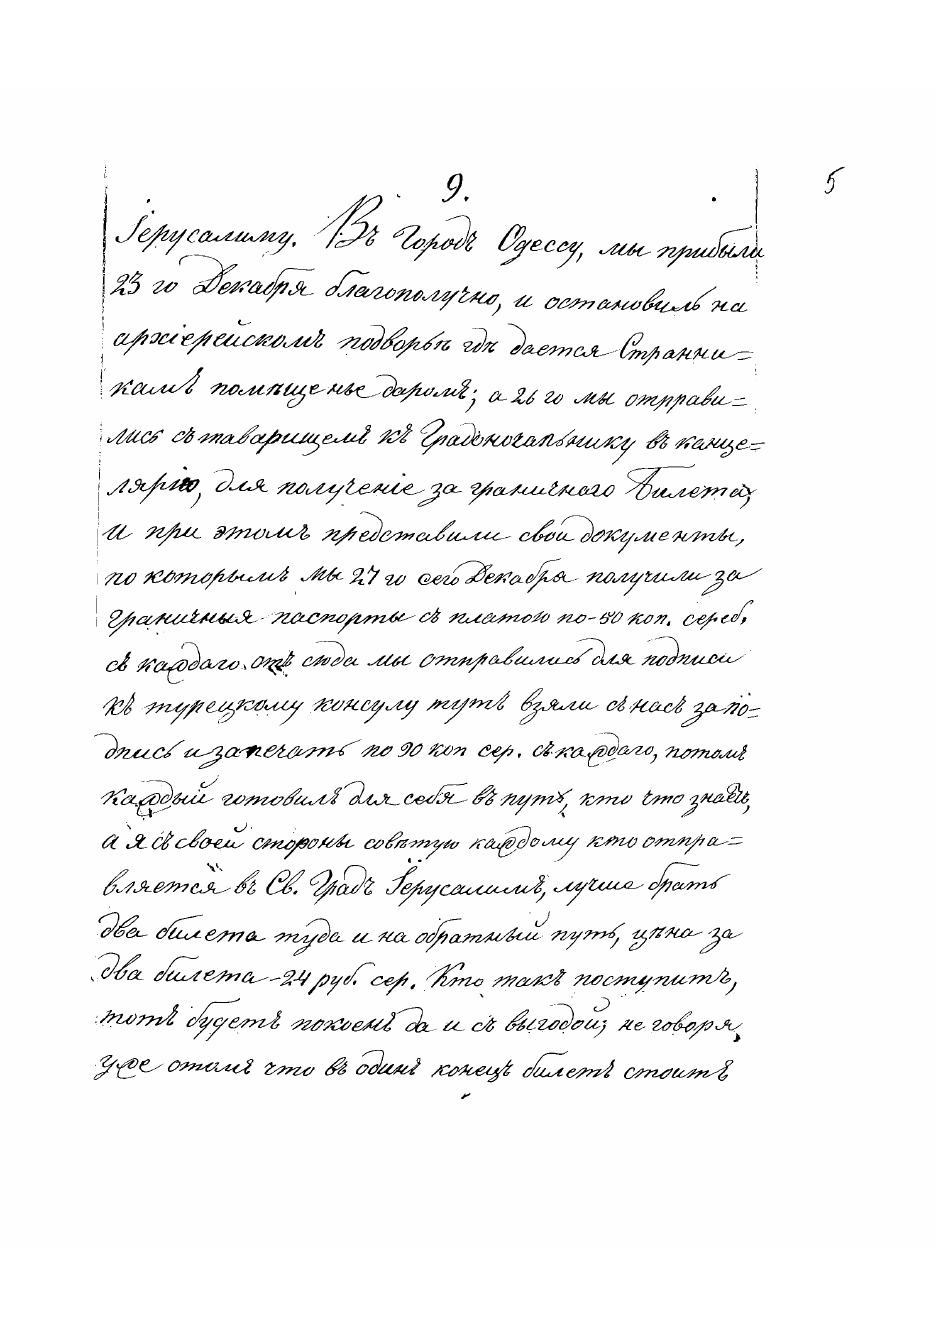 9.
5
Іерусалиму. Въ Городъ Одессу, мы прибыли
23 го Декабря благополучно, и остановиль на
архіерейскомъ подворьѣ гдѣ дается Странни=
камъ помѣщенье даромъ; а 26 го мы отправи=
лись съ таварищемъ къ Градоночальнику въ канце=
лярію, для полученіе за граничного Билета,
и при этомъ представили свои документы,
по которымъ мы 27 го сего Декабря получили за
граничныя паспорты съ платою по-50 коп. сереб.
съ каждаго. отъ сюда мы отправились для подписи
къ турецкому консулу тутъ взяли съ насъ за по=
дпись и запечать по 90 коп сер. съ каждаго, потомъ
каждый готовилъ для себя въ путь, кто что знаетъ,
а я съ своей стороны совѣтую каждому кто отпра=
вляется въ Св. Градъ Іерусалимъ, лучше брать
два билета туда и на обратный путь, цѣна за
два билета -24 руб. сер. Кто такъ поступитъ,
тотъ будетъ покоенъ да и съ выгодой; не говоря,
уже отомъ что въ одинъ конецъ билетъ стоитъ